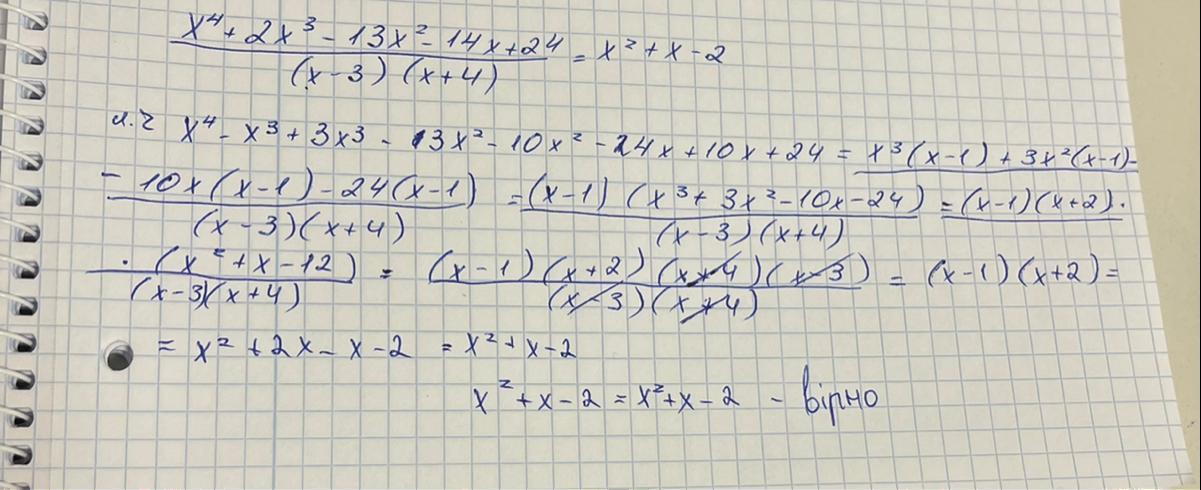 x⁴ + 2x³ - 13x² - 14x + 24 = x² + x - 2
(x - 3) (x + 4)
л.ч x⁴ - x³ + 3x³ - 13x² - 10x² - 24x + 10x + 24 = x³(x-1) + 3x²(x-1) -
- 10x(x-1) - 24(x-1) = (x-1) (x³ + 3x² - 10x - 24) = (x-1)(x+2) ·
(x-3)(x+4) (x-3)(x+4)
· (x² + x - 12) = (x-1)(x+2)(x+4)(x-3) = (x-1)(x+2) =
(x-3)(x+4) (x-3)(x+4)
= x² + 2x - x - 2 = x² + x - 2
x² + x - 2 = x² + x - 2 - вірно